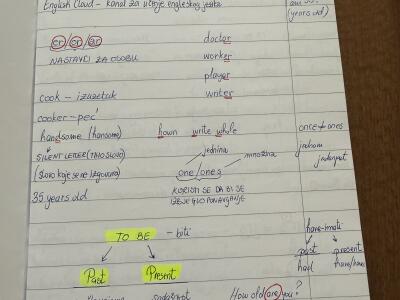 English Cloud - kanal za učenje engleskog jezika
(years old)
er/or/ar
doctor
NASTAVCI ZA OSOBU
worker
player
cook - izuzetak
writer
cooker - peć
handsome (hansome)
hown write whole
once ones
SILENT LETTER (TIHO SLOVO)
jednina
množina
jednom
jedanput
(slovo koje se ne izgovara)
one/ones
35 years old
KORISTI SE DA BI SE
IZBJEGLO PONAVLJANJE
TO BE - biti
have-imati
past present
had have/has
Past Present
How old are you?